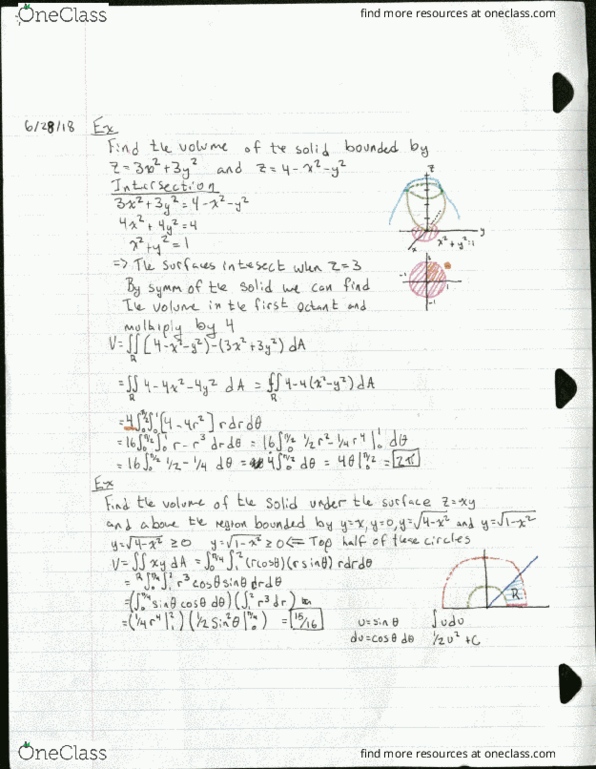 OneClass
find more resources at oneclass.com
6/28/18 Ex
Find the volume of te solid bounded by
z=3x²+3y² and z=4-x²-y²
Intersection
3x²+3y²=4-x²-y²
4x²+4y²=4
x²+y²=1
=> The surfaces intersect when z=3
By symm of the solid we can find
the volume in the first octant and
multiply by 4
V=∬_R [4-x²-y²)-(3x²+3y²) dA
=∬_R 4-4x²-4y² dA = ∬_R 4-4(x²-y²) dA
=4∫₀^(π/2)∫₀¹[4-4r²] r dr dθ
=16∫₀^(π/2)∫₀¹ r-r³ dr dθ = 16∫₀^(π/2) ½r²-¼r⁴|₀¹ dθ
=16∫₀^(π/2) ½-¼ dθ = 4∫₀^(π/2) dθ = 4θ|₀^(π/2) = 2π
z
y
x
x²+y²=1
-1
1
-1
Ex
Find the volume of the solid under the surface z=xy
and above the region bounded by y=x, y=0, y=√(4-x²) and y=√(1-x²)
y=√(4-x²) ≥0 y=√(1-x²) ≥0 <= Top half of these circles
V=∬ xy dA = ∫₀^(π/4)∫₁² (r cosθ)(r sinθ) r dr dθ
=∫₀^(π/4)∫₁² r³ cosθ sinθ dr dθ
=(∫₀^(π/4) sinθ cosθ dθ)(∫₁² r³ dr)
=(¼r⁴|₁²)(½ sin²θ|₀^(π/4)) = 15/16
R
u=sinθ ∫u du
du=cosθ dθ ½u²+C
OneClass
find more resources at oneclass.com